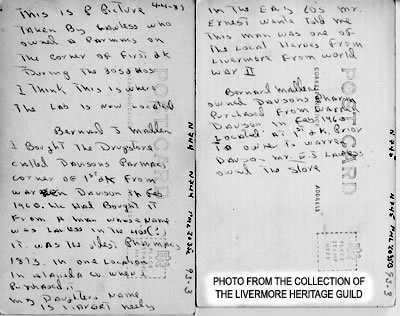 This is a Picture 44-81
Taken By Lawless who
owned a Parmacy on
The Corner of First & K
During The 30s & 40s
I Think This is where
The Lab is Now Located
Bernard J Mallen
I Bought The Drugstore
called Dawsons Parmacy
corner of 1st & K From
Warren Dawson in Feb
1960. He Had Bought it
From A Man whose Name
was Lawless in The
it was the oldest Pharmacy
1873. in one Location
in Alameda Co. when I
Purchased it.
my Daughters Name
is
POSTCARD
N 244
N 244
93-3
In The Early 60s Mr.
Ernest Wente Told Me
This Man was one of
The Local Heroes From
Livermore From World
War II
Bernard Mallen
owned Dawsons Pharm
Purchased From Warren
Dawson in Feb 1960
Located at 1st & K. Prior
To owner T. Warren
Dawson Mr. E J Lawless
owned The Store
POST CARD
CORRESPONDENCE
ADDRESS
N 245
N 245
93-3
PHOTO FROM THE COLLECTION OF
THE LIVERMORE HERITAGE GUILD